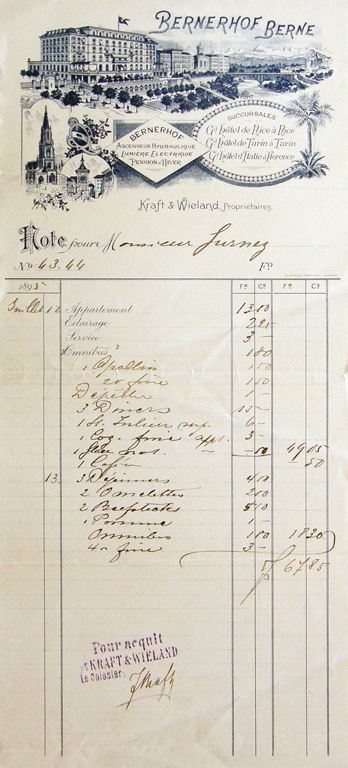 BERNERHOF BERNE
BERNERHOF
ASCENSEUR HYDRAULIQUE
LUMIÈRE ELECTRIQUE
PENSION D'HIVER
SUCCURSALES
Gd hôtel de Nice à Nice
Gd hôtel de Turin à Turin
Gd hôtel d'Italie à Florence
Kraft & Wieland, Propriétaires.
Note pour Monsieur
No 43.44 Fo
1895 Fs Cs Fs Cs
Juillet 12 Appartement 13 50
Eclairage 2 25
Service 3 –
Omnibus 1 50
1 Apollin 1 50
fine 1 50
Dépêche 1 –
3 Diners 15 –
1 St. Julien sup. 6 –
1 Cog. fine appt. 3 –
1 50 49 05
1 Café – 50
13. 3 Dejeuners 4 50
2 Omelettes 2 50
2 Beefsteaks 5 50
1 Pomme 1 –
Omnibus 1 50 18 30
4 fine 3 –
67 85
Pour acquit
KRAFT & WIELAND
Le Caissier: